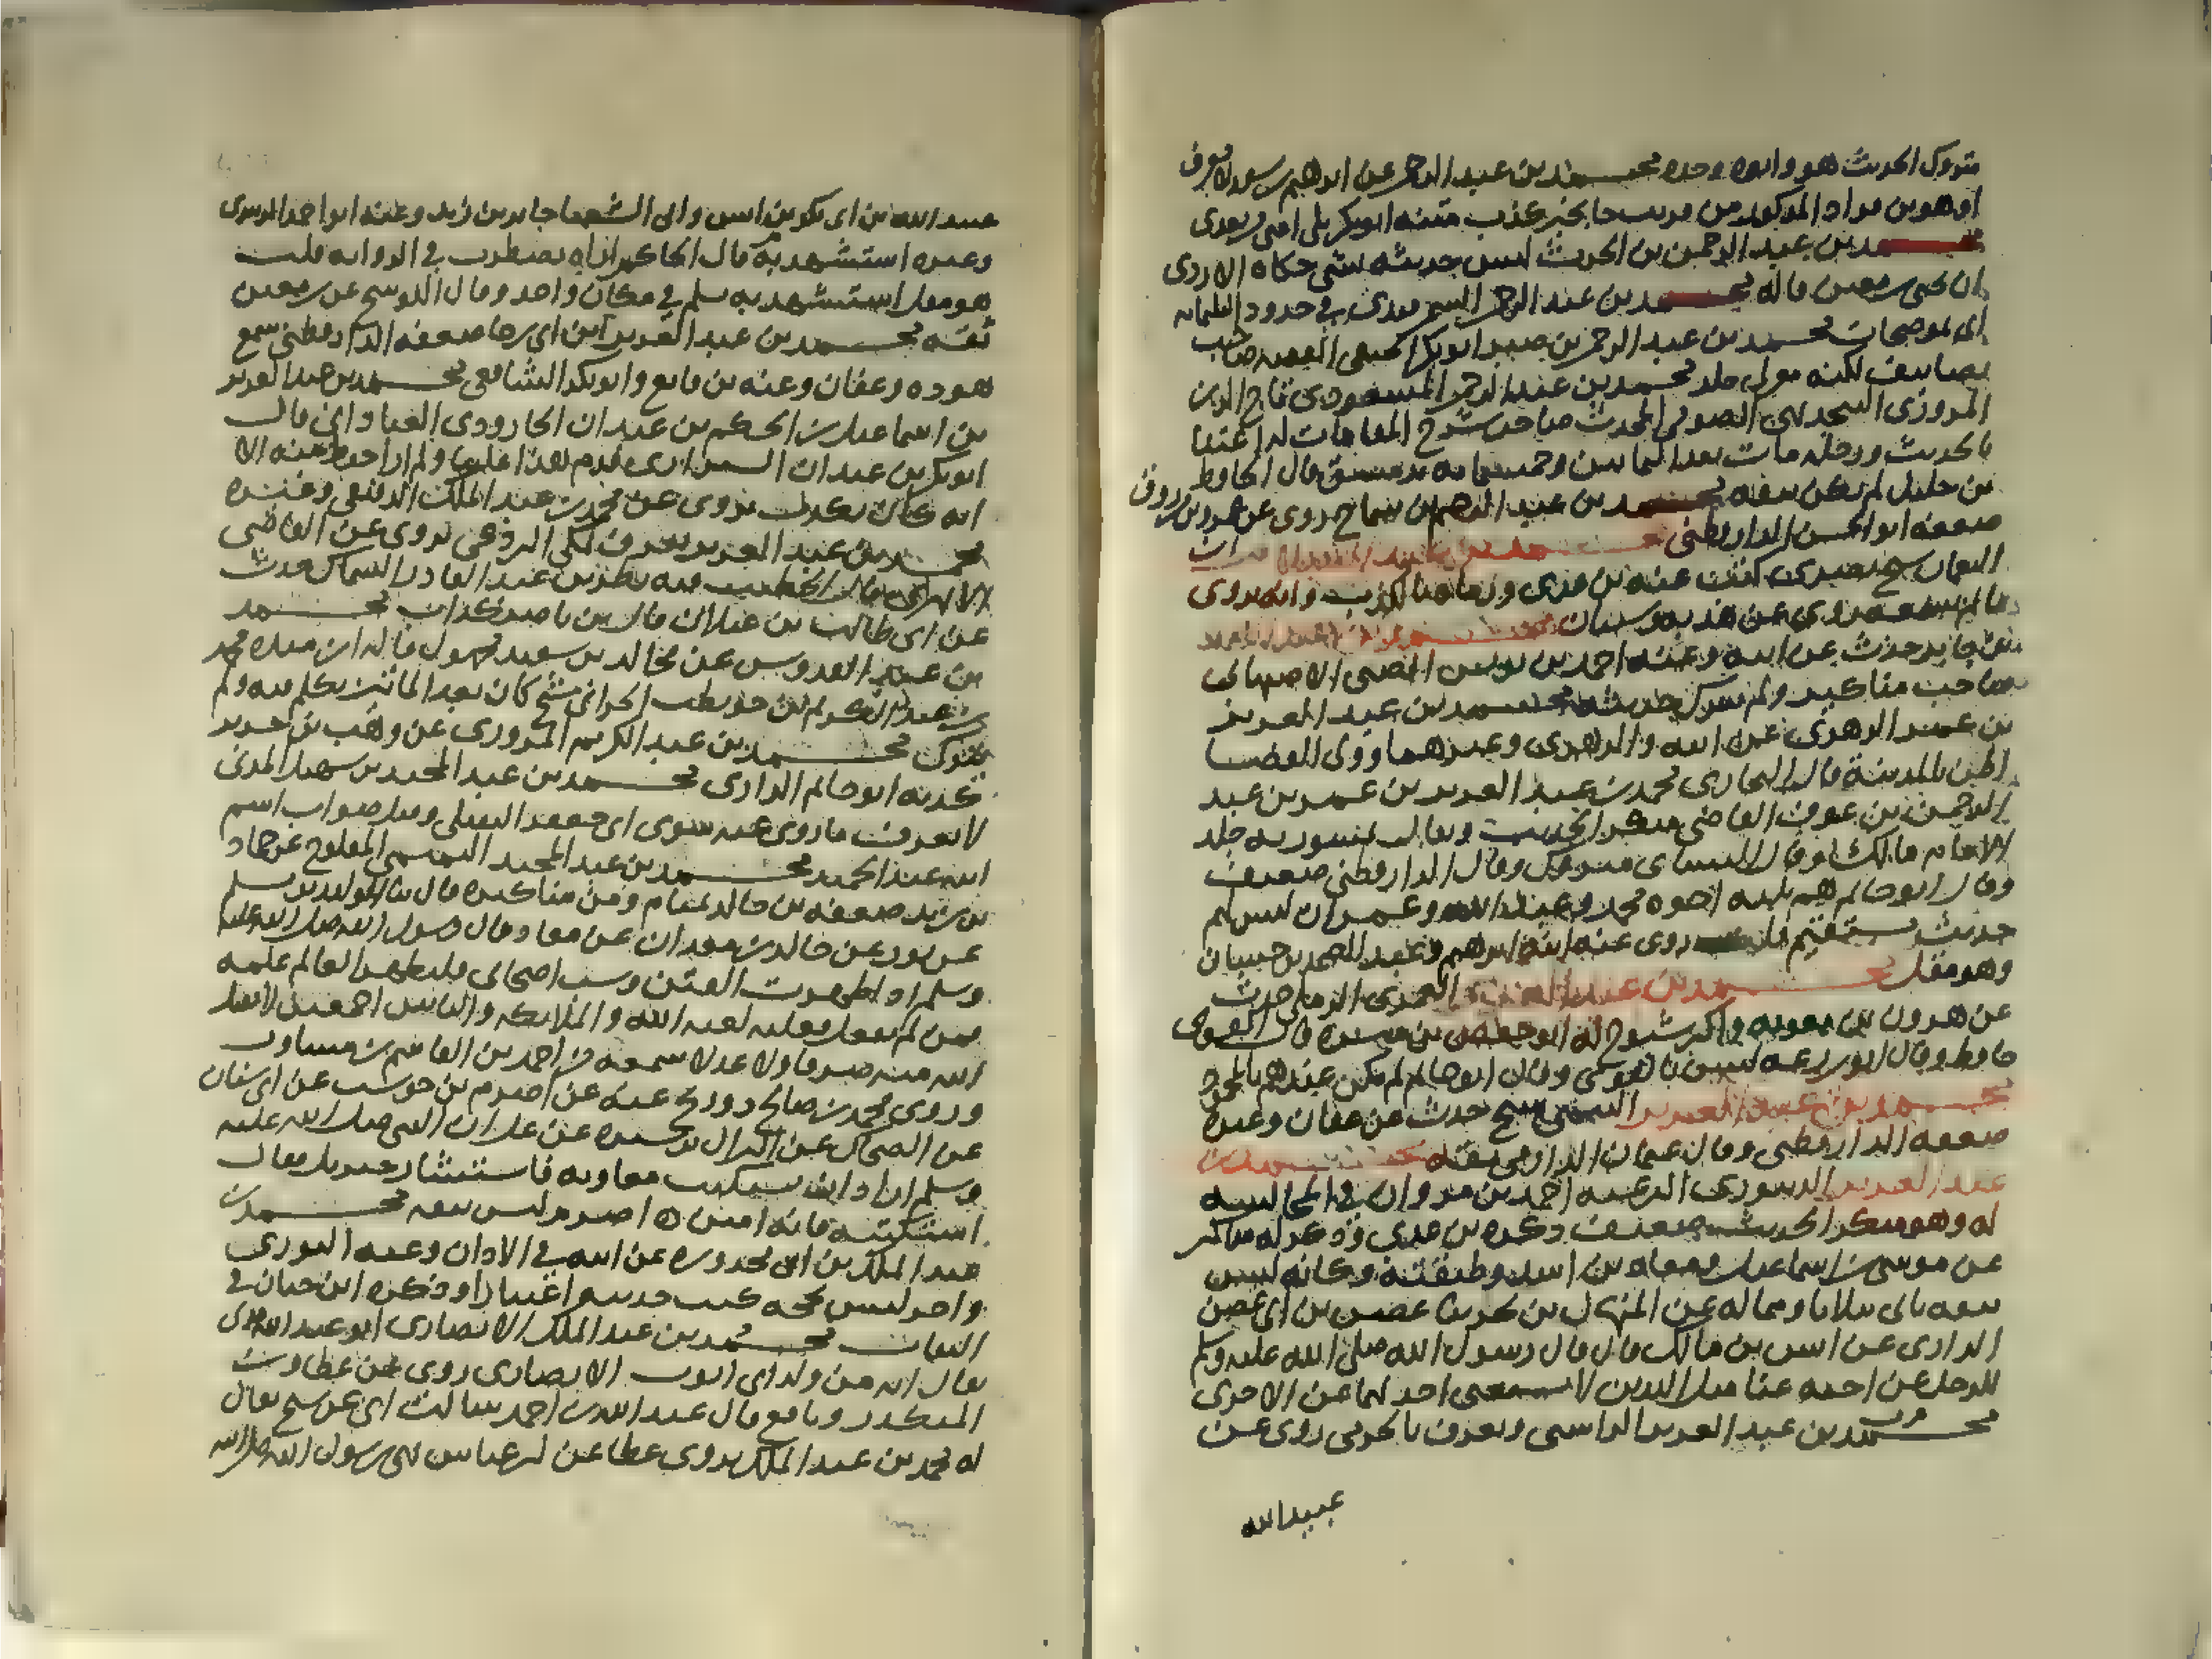 متروك الحديث هو وابوه وجده محمد بن عبد الرحمن عن ابرهيم بن سعد لا يعرف
او هو بن مراد المذكور من قريب جا بخبر كذب متنه ابو بكر يلي امتي بعدي
محمد بن عبد الرحمن بن الحرث ليس حديثه بشي حكاه الازدي
ان يحيى بن معين قاله محمد بن عبد الرحمن السمرقندي في حدود الثلثمايه
اتى بموضوعات محمد بن عبد الرحمن بن صبر ابو بكر الحنفي الفقيه صاحب
تصانيف لكنه معتزلي جلد محمد بن عبد الرحمن المسعودي تاج الدين
المروزي البنجديهي الصوفي المحدث صاحب شرح المقامات له اعتنا
بالحديث ورحلة مات بعد الثمانين وخمسمايه بدمشق قال الحافظ
بن خليل لم يكن بثقه محمد بن عبد الرحيم بن شماخ روى عن عمرو بن مرزوق
ضعفه ابو الحسن الدارقطني
النعمان شيخ بصري كتب عنه بن عدي ورماه بالكذب وانه يروي
ما لم يسمعه روى عن هدبه وشيبان
بن جابر حدث عن ابيه وعنه احمد بن يونس الضبي الاصبهاني
صاحب مناكير ولم يترك حديثه محمد بن عبد العزيز
بن عمر الزهري عن ابيه والزهري وغيرهما وولي القضا
اظن بالمدينة قال البخاري محمد بن عبد العزيز بن عمر بن عبد
الرحمن بن عوف القاضي منكر الحديث ويقال بمشورته جلد
الامام مالك وقال النسائي متروك وقال الدارقطني ضعيف
وقال ابو حاتم هم ثلثه اخوه محمد وعبد الله وعمران ليس لهم
حديث مستقيم روى عنه ابنه ابرهيم وعبد الصمد بن حسان
وهو مقل محمد بن عبد العزيز العمري الرملي حدث
عن هرون بن معويه واكبر شيوخ له ابو حفص بن ميسره قال الفسوي
حافظ وقال ابو زرعه ليس بالقوي وقال ابو حاتم لم يكن عندهم بالمحمود
محمد بن عبد العزيز التيمي شيخ حدث عن عفان وغيره
ضعفه الدارقطني وقال عثمان الدارمي ثقه محمد بن
عبد العزيز الدينوري اكثر عنه احمد بن مروان في المجالسه
له وهو منكر الحديث ضعيف ذكره بن عدي وذكر له مناكير
عن موسى بن اسماعيل ومعاذ بن اسد وطبقته وكانه ليس
بثقه ياتي ببلايا ومما له عن المنهال بن بحر ثنا غصن بن ابي غصن
الداري عن انس بن مالك قال قال رسول الله صلى الله عليه وسلم
للرجل عن اخيه غنا مثل اليدين لا يستغني احدهما عن الاخرى
محمد بن عبد العزيز الراسبي ويعرف بالجرمي روى عن
عبيد الله
عبيد الله بن ابي بكر بن انس وابي الشعثا جابر بن زيد وعنه ابو احمد الزبيري
وغيره استشهد به م قال الحاكم اراه يضطرب في الروايه قلت
هو مقل استشهد به مسلم في مكان واحد وقال الكوسج عن بن معين
ثقه محمد بن عبد العزيز ابن ابي رجا ضعفه الدارقطني سمع
هوذه وعفان وعنه بن قانع وابو بكر الشافعي محمد بن عبد العزيز
بن اسماعيل بن الحكم بن عبدان الجارودي العباداني قال
ابو بكر بن عبدان الشيرازي قدم بغداد علينا ولم ار احفظ منه الا
انه كان يكذب يروي عن محمد بن عبد الملك الدقيقي وغيره
محمد بن عبد العزيز يعرف بمكي البرذعي يروي عن القاضي
الابهري قال الخطيب فيه نظر بن عبد القادر السماك حدث
عن ابي طالب بن غيلان قال بن ناصر كذاب محمد
بن عبد القدوس عن مجالد بن سعيد مجهول قاله ابن منده محمد
بن عبد الكريم بن حويطب الحراني شيخ كان بعد المائتين تكلم فيه ولم
يترك محمد بن عبد الكريم المروزي عن وهب بن جرير
كذبه ابو حاتم الرازي محمد بن عبد المجيد بن سهيل المدني
لا يعرف ما روى عنه سوى ابي جعفر النفيلي وقيل صواب اسم
ابيه عبد الحميد محمد بن عبد المجيد التميمي المفلوج عن حماد
بن زيد ضعفه بن خالد تمتام ومن مناكيره قال ثنا الوليد بن مسلم
عن ثور عن خالد بن معدان عن معاذ قال رسول الله صلى الله عليه
وسلم اذا ظهرت الفتن وسب اصحابي فليظهر العالم علمه
فمن لم يفعل فعليه لعنة الله والملايكه والناس اجمعين لا يقبل
الله منه صرفا ولا عدلا سمعه من احمد بن القاسم بن مساور
وروى محمد بن صالح دورنج عنه عن اصرم بن حوشب عن ابي سنان
عن الضحاك عن النزال بن سبره عن علي ان النبي صلى الله عليه
وسلم اراد ان يستكتب معاويه فاستشار جبريل فقال
استكتبه فانه امين ه اصرم ليس بثقه محمد بن
عبد الملك بن ابي محذوره عن ابيه في الاذان وعنه الثوري
واخر ليس بحجه يكتب حديثه اعتبارا وذكره ابن حبان في
الثقات محمد بن عبد الملك الانصاري ابو عبد الله المدني
يقال انه من ولد ابي ايوب الانصاري روى عن عطا وبن
المنكدر ونافع قال عبد الله بن احمد سالت ابي عن شيخ يقال
له محمد بن عبد الملك يروي عطا عن بن عباس نهى رسول الله صلى الله